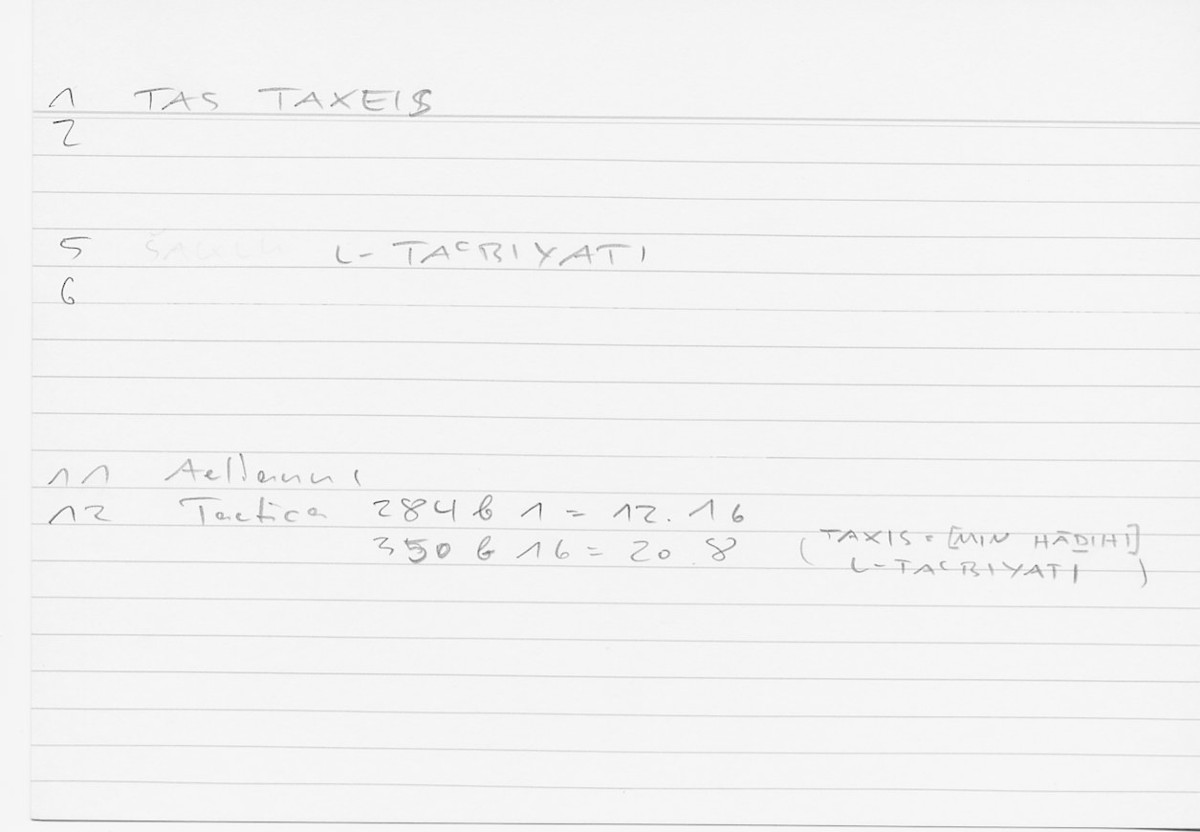 1 TAS TAXEIS
2
5 L-TAᶜBIYATI
6
11 Aelianus
12 Tactica 284 b 1 = 12.16
350 b 16 = 20.8 (TAXIS = [MIN HĀḎIHI]
L-TAᶜBIYATI )